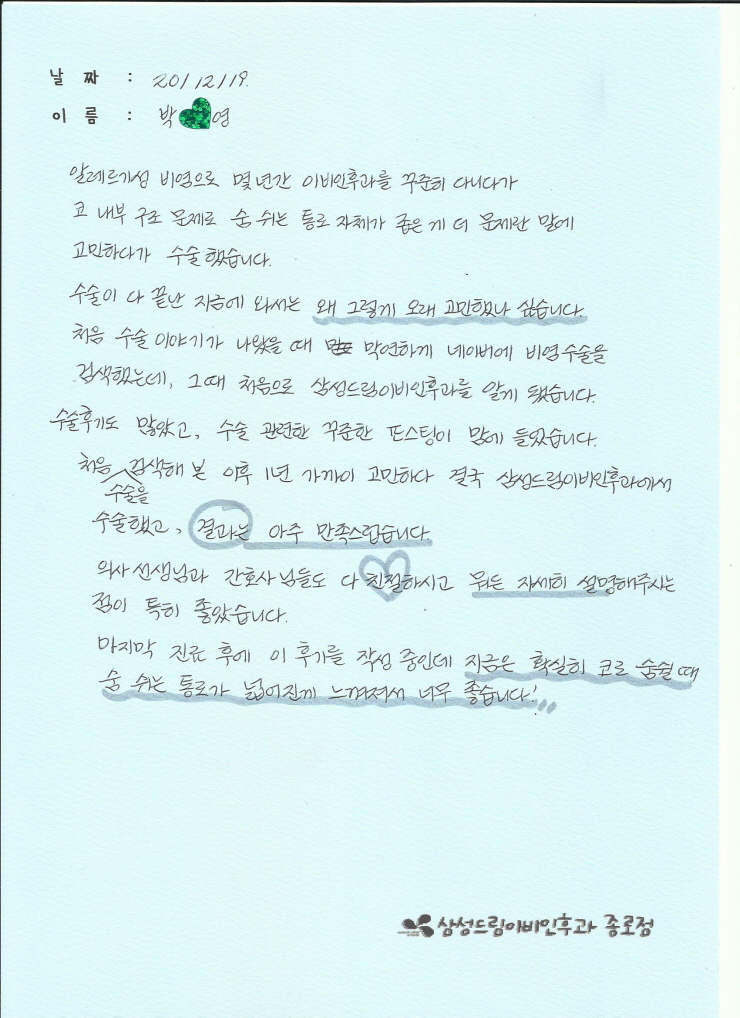 날 짜 : 2011/12/19.
이 름 : 박 영
알레르기성 비염으로 몇 년간 이비인후과를 꾸준히 다니다가
코 내부 구조 문제로 숨 쉬는 통로 자체가 좁은 게 더 문제란 말에
고민하다가 수술했습니다.
수술이 다 끝난 지금에 와서는 왜 그렇게 오래 고민했나 싶습니다.
처음 수술 이야기가 나왔을 때 막연하게 네이버에 비염수술을
검색했는데, 그때 처음으로 삼성드림이비인후과를 알게 됐습니다.
수술후기도 많았고, 수술 관련한 꾸준한 포스팅이 맘에 들었습니다.
처음 검색해 본 이후 1년 가까이 고민하다 결국 삼성드림이비인후과에서
수술을
수술했고, 결과는 아주 만족스럽습니다.
의사선생님과 간호사님들도 다 친절하시고 뭐든 자세히 설명해주시는
점이 특히 좋았습니다.
마지막 진료 후에 이 후기를 작성 중인데 지금은 확실히 코로 숨쉴 때
숨 쉬는 통로가 넓어진게 느껴져서 너무 좋습니다!
삼성드림이비인후과 종로점